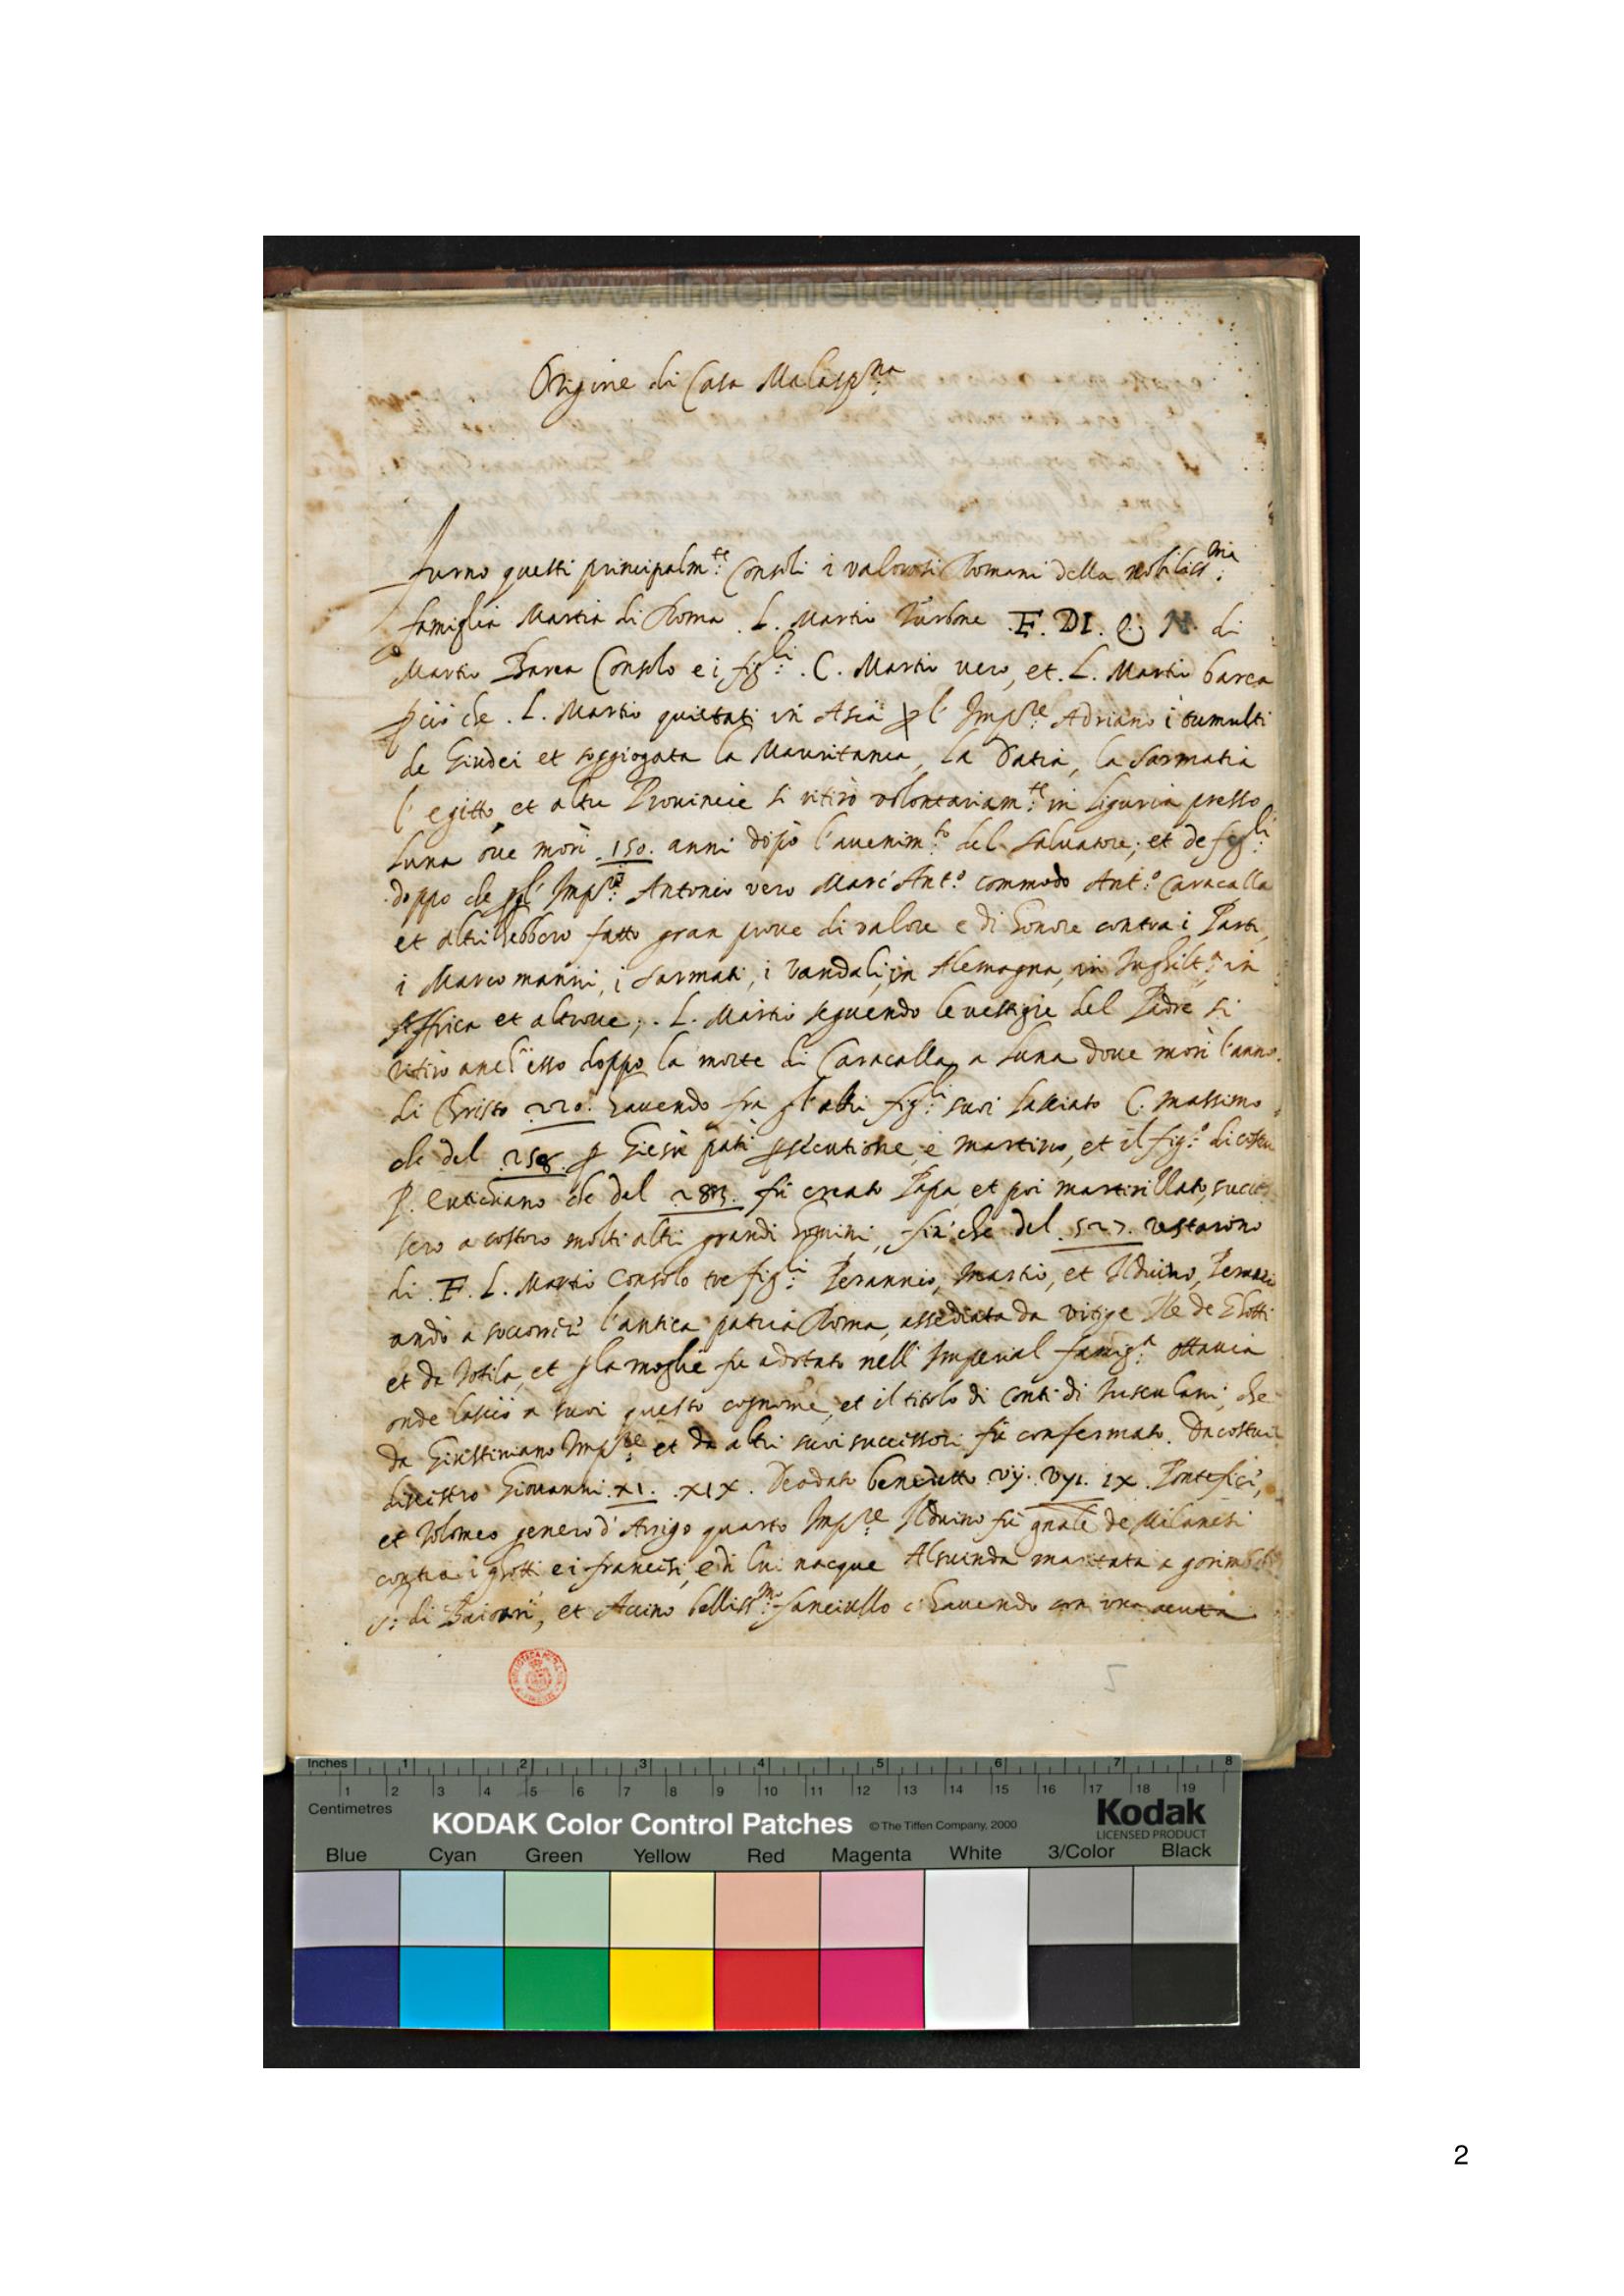 www.internetculturale.it
Origine di Casa Malasp:na
furno questi principalm:te Consoli i valorosi Romani della nobiliss:ma
famiglia Martia di Roma . L. Martio Turbone .F. DI. Q. N. di
Martio Barea Consolo e i fig:li . C. Martio vero, et . L. Martio barea
pciò che . L. Martio quietati in Asia p l' Imp:re Adriano i tumulti
de Giudei et soggiogata la Mauritania, la Datia, la Sarmatia
l' egitto, et altre Provincie si ritirò volontariam:te in Liguria presso
Luna ove morì .150. anni dopò l'avenim:to del Salvatore; et de figli:
doppo che Imp:ri Antonio vero Marc'Ant:o commodo Ant:o Caracalla
et altri hebbero fatto gran prove di valore e di honore contra i Parti,
i Marcomanni, i Sarmati, i Vandali, in Alemagna, in Inghilt:a in
Affrica et altrove; . L. Martio seguendo le vestigie del Padre si
ritirò anch'esso doppo la morte di Caracalla, a Luna dove morì l'anno
di Christo 220. havendo fra gl'altri fig:li suoi lasciato C. Massimo
che del 258. p Giesù patì psecutione, e martirio, et il fig:o di costui
P. Eutichiano che del 283. fù creato Papa, et poi martirillato, succes
sero a costoro molti altri grandi homini, fin che del .527. restarono
di .F. L. Martio Consolo tre fig:li Perannio, Martio, et Alduino,
andò a soccorrer l'antica patria Roma, assediata da Vitige Re de Ghotti
et da Totila, et p la moglie fu adotato nell' Imperial famig:a ottavia
onde lasciò a suoi questo cognome, et il titolo di conti di Tusculani, che
da Giustiniano Imp:re et da altri suoi successori fù confermato. Da costui
discesero Giovanni .XI. .XIX. Deodato benedetto .vij. vyi. ix. Pontefici,
et Tolomeo genero d' Arrigo quarto Imp:re Alduino fù gnale de Milanesi
contra i ghotti e i francesi, e di lui nacque Alsuinda maritata a
s: di Baioari, et Accino belliss:mo fanciullo c havendo con una acuta
5
Inches 1 2 3 4 5 6 7 8
Centimetres 1 2 3 4 5 6 7 8 9 10 11 12 13 14 15 16 17 18 19
KODAK Color Control Patches © The Tiffen Company, 2000 Kodak
LICENSED PRODUCT
Blue Cyan Green Yellow Red Magenta White 3/Color Black
2